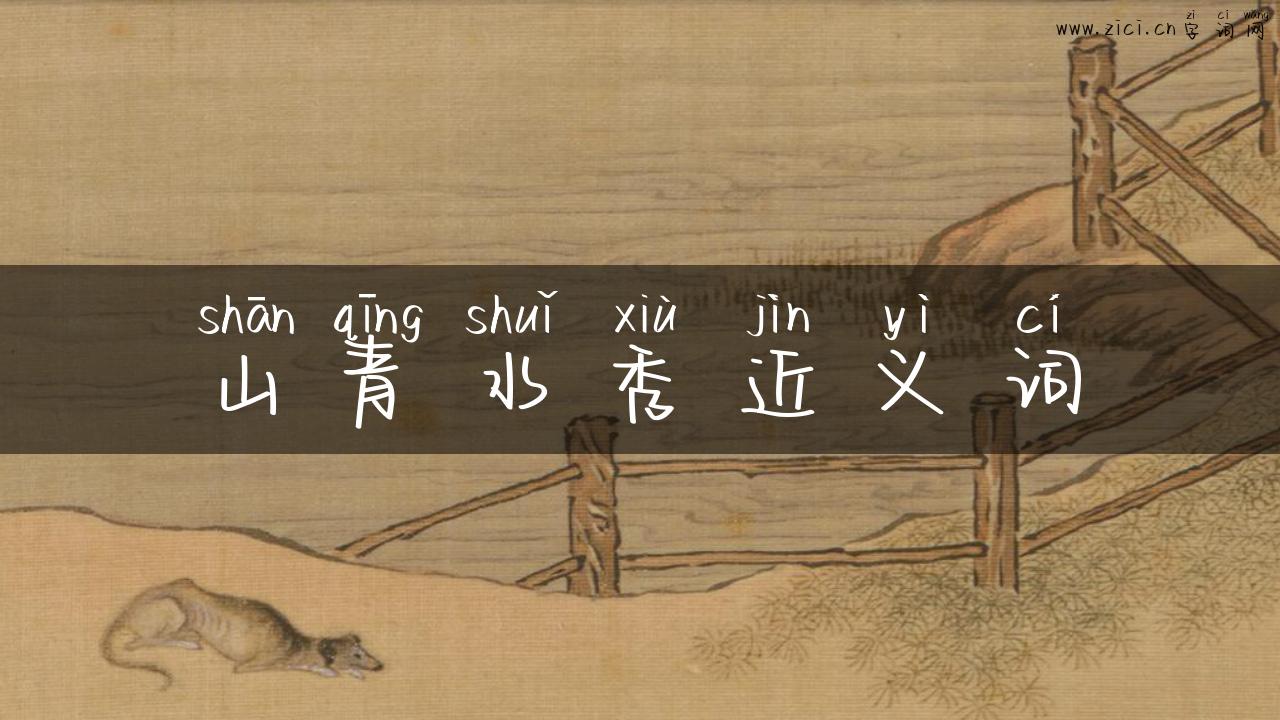 zì cí wǎng
www.zici.cn 字词网
shān qīng shuǐ xiù jìn yì cí
山青水秀近义词